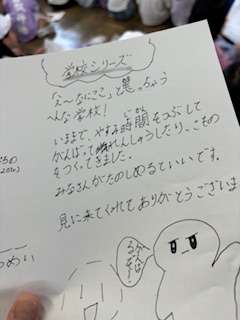 学校シリーズ
「な〜なにここ」と驚っちょう
へんな学校!
いままで、やすみ時間をつぶして
じかん
がんばってれんしゅうしたり、こもの
をつくってきました。
みなさんがたのしめるといいです。
見に来てくれてありがとうございま
がんば
るぞ!